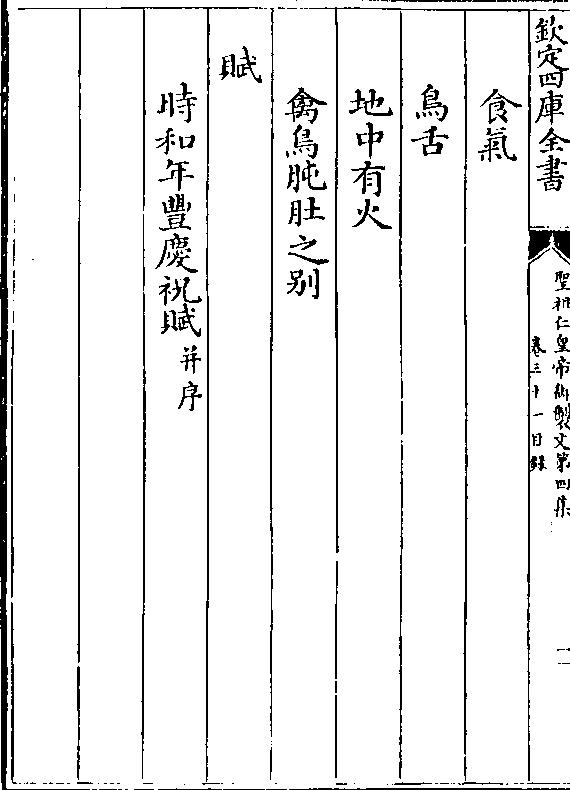 欽定四庫全書
聖祖仁皇帝御製文第四集
卷三十一目錄
二
食氣
鳥舌
地中有火
禽鳥肫肚之别
賦
時和年豐慶祝賦并序